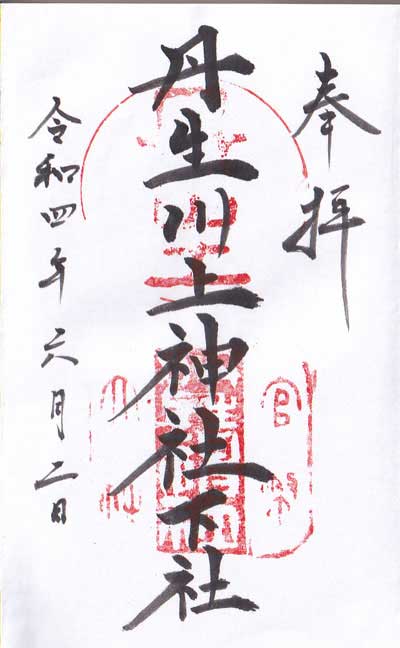 奉拝
丹生川上神社下社
令和四年六月二日